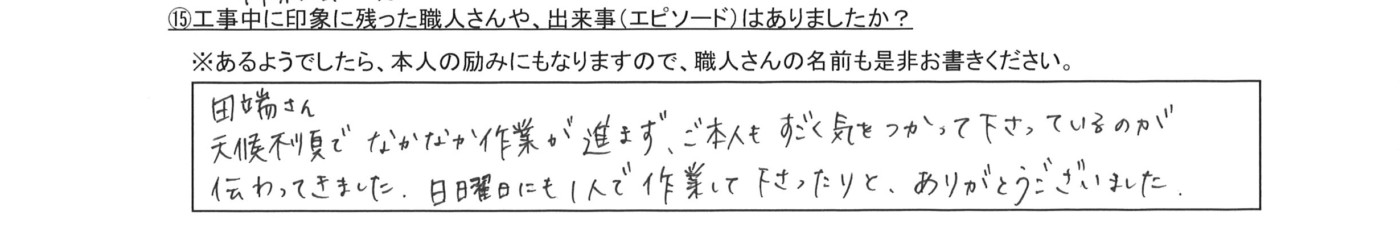 ⑮工事中に印象に残った職人さんや、出来事（エピソード）はありましたか？
※あるようでしたら、本人の励みにもなりますので、職人さんの名前も是非お書きください。
田端さん
天候不順で なかなか作業が 進まず、ご本人も すごく気をつかって下さっているのが
伝わってきました. 日曜日にも1人で作業して下さったりと、ありがとうございました.